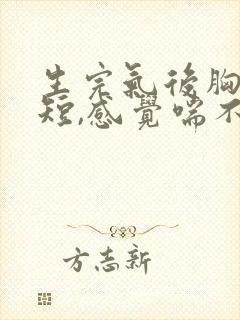 生完氣後胸
短,感覺喘不
方志新